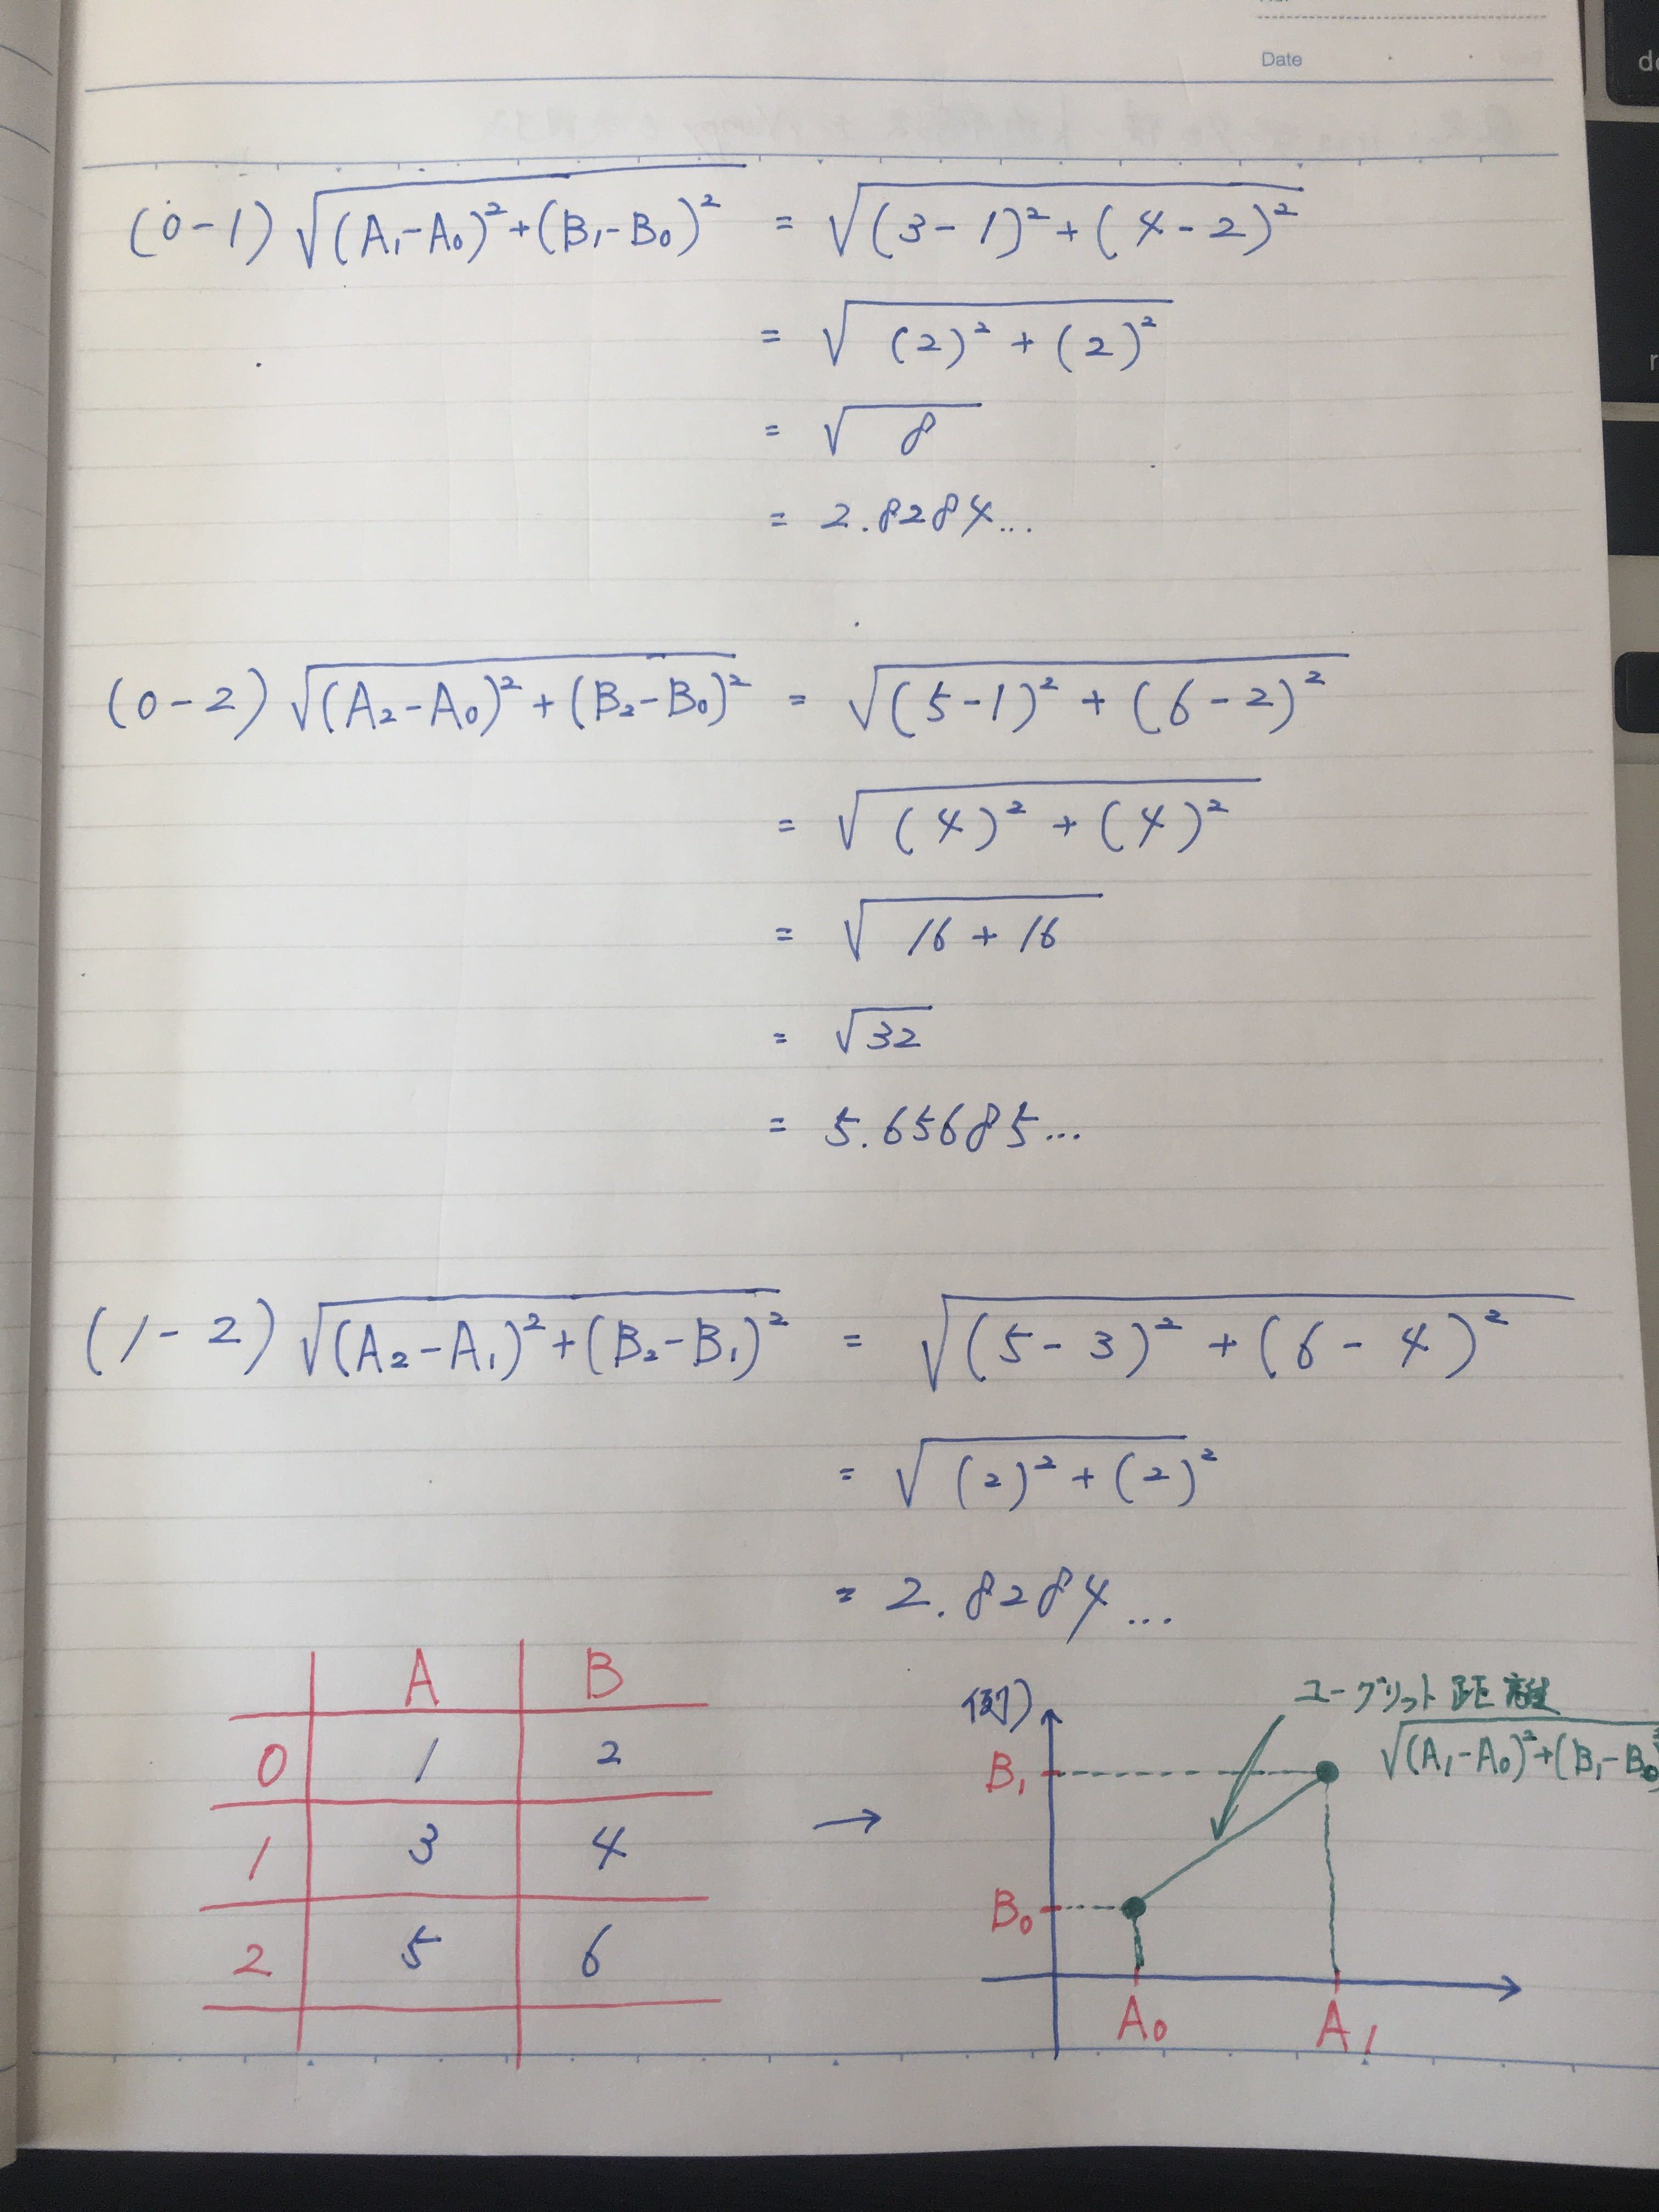 Date
(0-1) √(A₁-A₀)²+(B₁-B₀)² = √(3-1)²+(4-2)²
= √(2)²+(2)²
= √8
= 2.8284...
(0-2) √(A₂-A₀)²+(B₂-B₀)² = √(5-1)²+(6-2)²
= √(4)²+(4)²
= √16+16
= √32
= 5.65685...
(1-2) √(A₂-A₁)²+(B₂-B₁)² = √(5-3)²+(6-4)²
= √(2)²+(2)²
= 2.8284...
A B
0 1 2
1 3 4
2 5 6
→
例)
ユークリット距離
√(A₁-A₀)²+(B₁-B₀)²
B₁
B₀
A₀ A₁